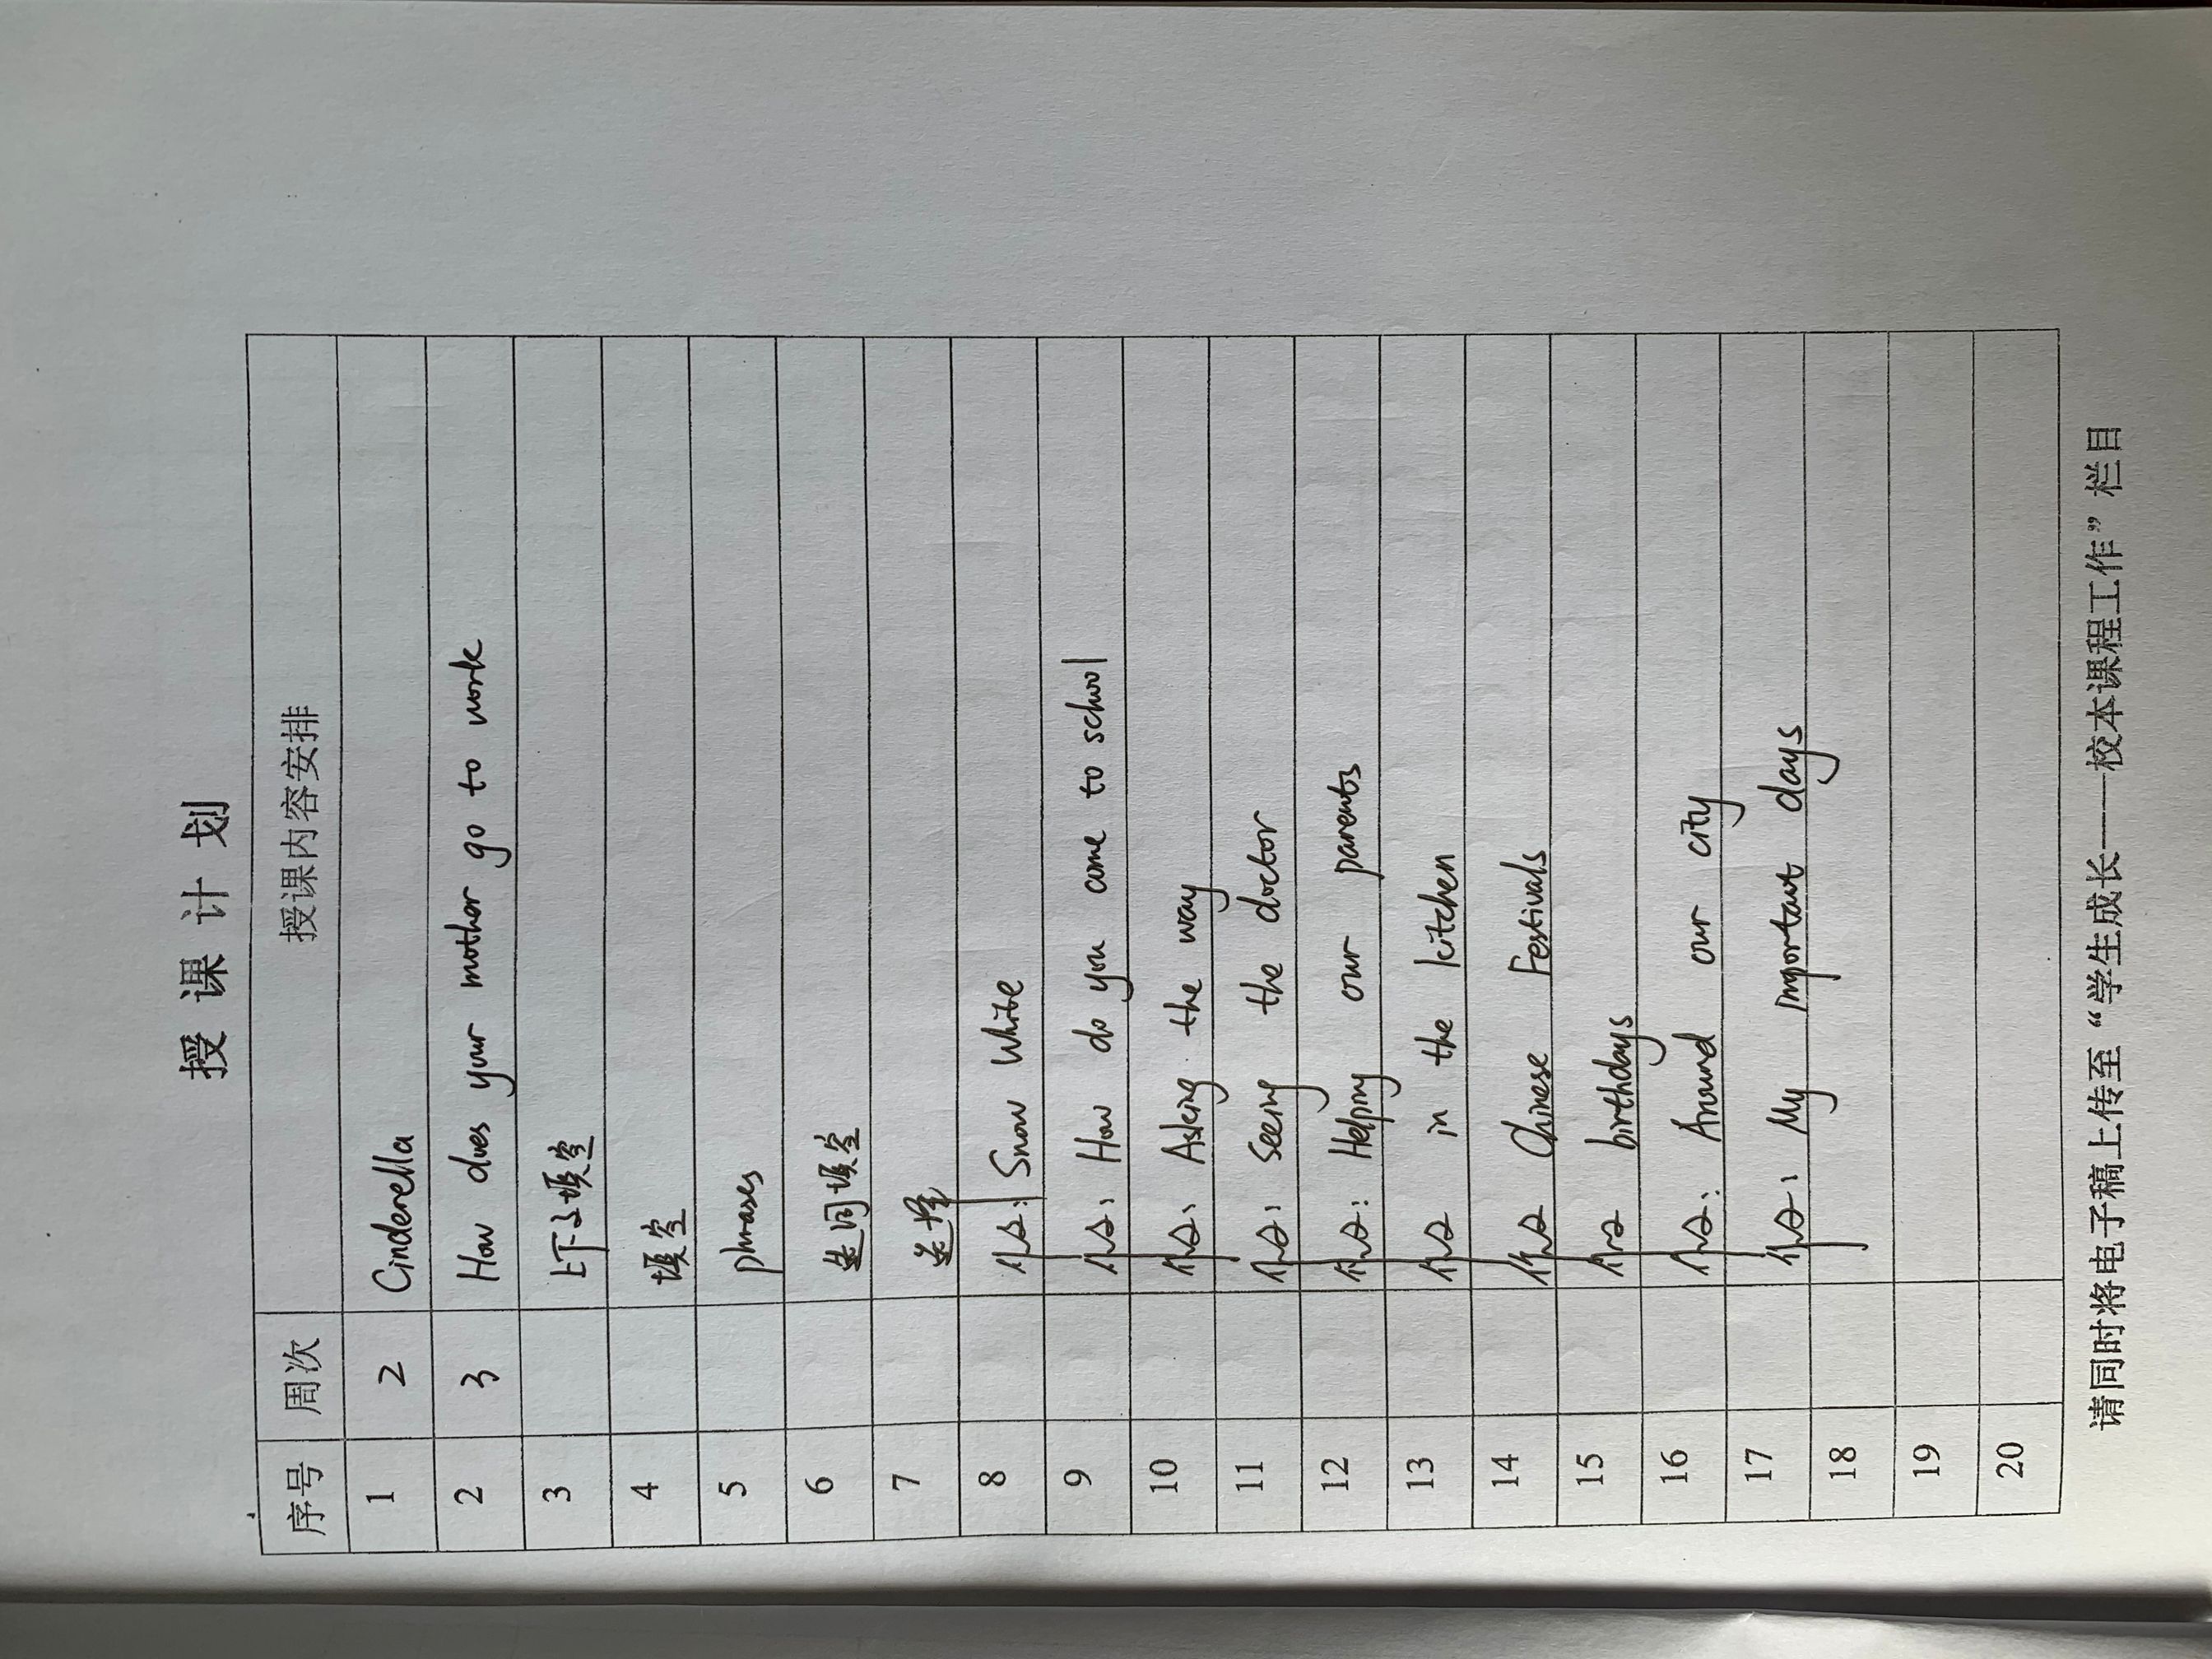 授课计划
序号 周次 授课内容安排
1 2 Cinderella
2 3 How does your mother go to work
3 上下文填空
4 填空
5 phrases
6 选词填空
7 选择
8 作文: Snow White
9 作文: How do you come to school
10 作文: Asking the way
11 作文: Seeing the doctor
12 作文: Helping our parents
13 作文 in the kitchen
14 作文 Chinese Festivals
15 作文 birthdays
16 作文: Around our city
17 作文: My important days
18
19
20
请同时将电子稿上传至“学生成长——校本课程工作”栏目